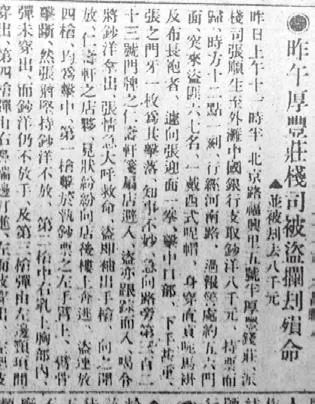 昨午厚豐莊棧司被盜攔刦殞命
▲並被刦去八千元
昨日上午十一時半、北京路福興里五號半厚豐錢莊派
棧司張順生至外灘中國銀行支取鈔洋八千元、持票而
歸、時方十二點一刻、行經河南路、過報處約五六門
面、突來盜匪六七名、一戴西式呢帽、身穿直貢呢馬褂
及布長袍者、遽向張迎面一拳、擊中口部、下手甚重
張之門牙一枚爲其擊落、知事不妙、急向路旁第六百二
十三號門牌之仁壽軒箋扇店避入、盜亦跟踪而入、喝令
將鈔洋拿出、張情急大呼救命、盜即袖出手槍、向之開
放、仁壽軒之店夥、見狀紛紛向店後樓上奔逃、盜連放
四槍、均爲擊中、第一槍擊於執鈔票之左手臂上、臂骨
擊斷、然張將堅持鈔洋不放、第二槍中右乳上胸部內、
彈未穿出、而鈔洋仍不放手、及第三槍彈由左邊頸項間
穿出、第四槍彈由右鼻端邊打進、左面皮穿出